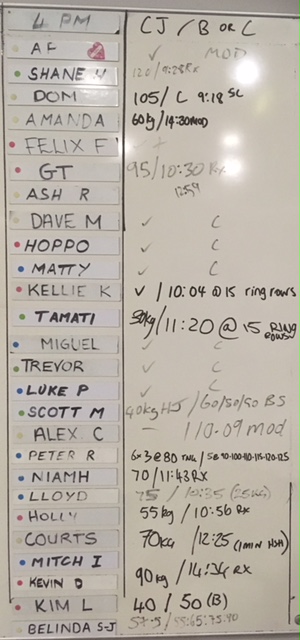 4 PM CJ / B OR C
AF ✓ MOD
SHANE H 120/9:28RX
DOM 105/C 9:18 SC
AMANDA 60kg/14:30MOD
FELIX F
GT 95/10:30 RX
ASH R 12:59
DAVE M ✓ C
HOPPO ✓ C
MATTY ✓ C
KELLIE K ✓ / 10:04 @15 ring rows
TAMATI 50kg/11:20 @ 15 RING ROWS
MIGUEL ✓ C
TREVOR ✓ C
LUKE P ✓ C
SCOTT M 40kg HJ / 60/50/50 BS
ALEX C — / 10.09 mod
PETER R 6x3@80 / 5@ 90-100-110-115-120-125
NIAMH 70 / 11:43RX
LLOYD 75 / 10:35 (25KG)
HOLLY 55kg / 10:56 RX
COURTS 70KG / 12:25 (1MIN HSH)
MITCH I
KEVIN D 90kg / 14:34 RX
KIM L 40 / 50 (B)
BELINDA S-J 57.5 / 55:65:75:90